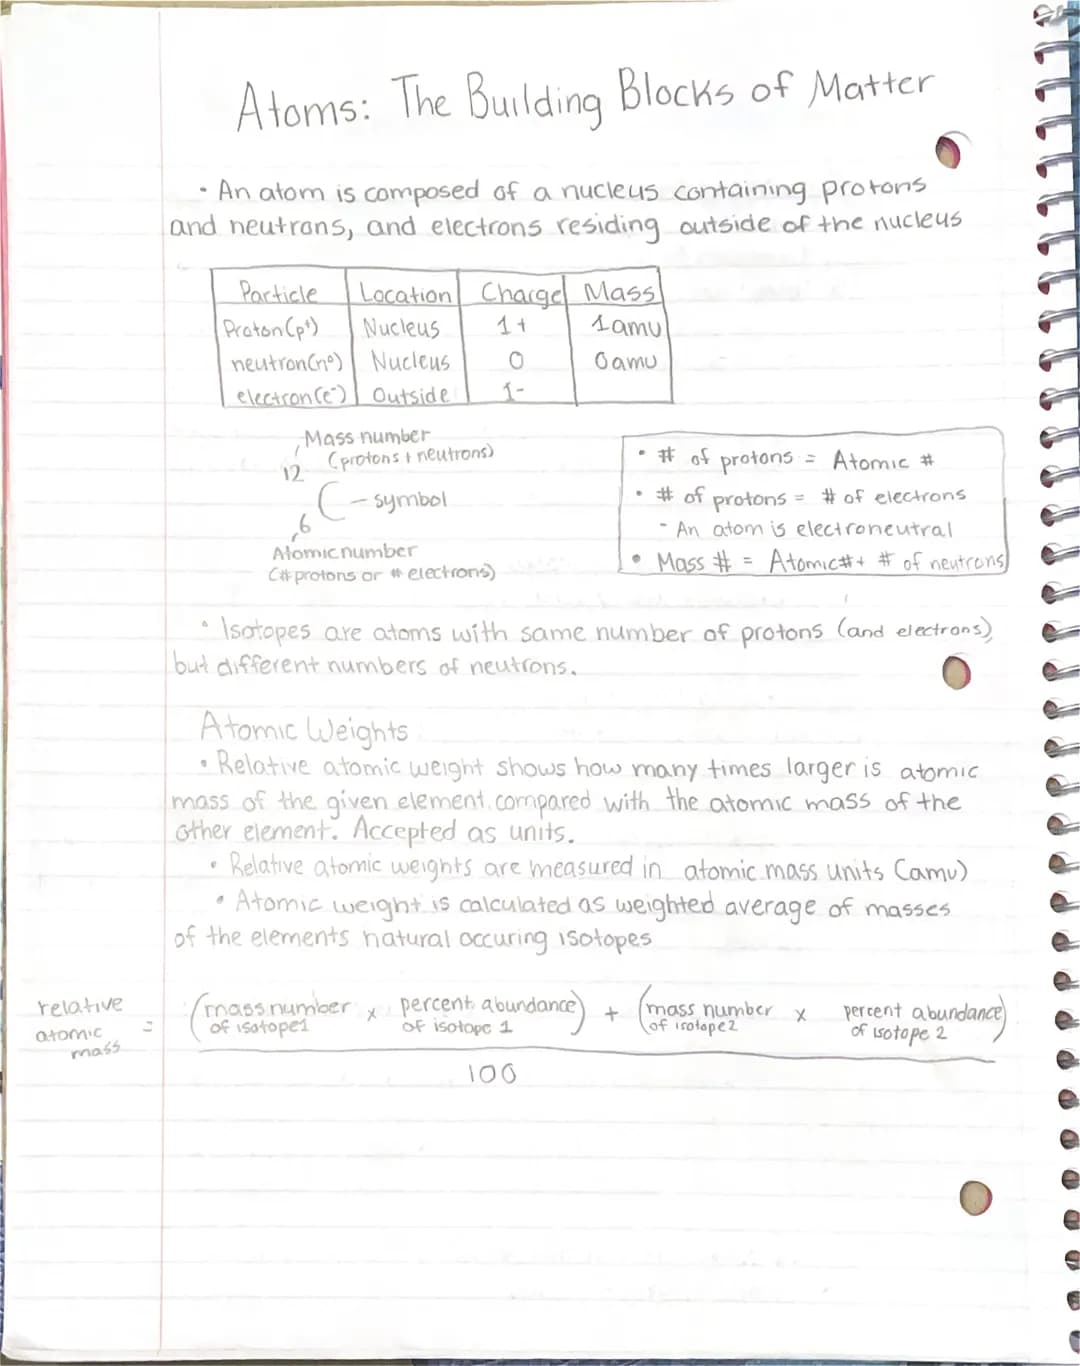 Atoms: The Building Blocks of Matter
• An atom is composed of a nucleus containing protons
and neutrons, and electrons residing outside of the nucleus
Particle Location Charge Mass
Proton (p⁺) Nucleus 1+ 1amu
neutron (n⁰) Nucleus 0 0amu
electron (e⁻) Outside 1-
Mass number
(protons + neutrons)
12
C - symbol
6
Atomic number
(# protons or # electrons)
• # of protons = Atomic #
• # of protons = # of electrons
- An atom is electroneutral
• Mass # = Atomic # + # of neutrons
• Isotopes are atoms with same number of protons (and electrons),
but different numbers of neutrons.
Atomic Weights
• Relative atomic weight shows how many times larger is atomic
mass of the given element compared with the atomic mass of the
other element. Accepted as units.
• Relative atomic weights are measured in atomic mass units (amu)
• Atomic weight is calculated as weighted average of masses
of the elements natural occuring isotopes
relative atomic mass = (mass number of isotope 1 x percent abundance of isotope 1) + (mass number of isotope 2 x percent abundance of isotope 2)
100